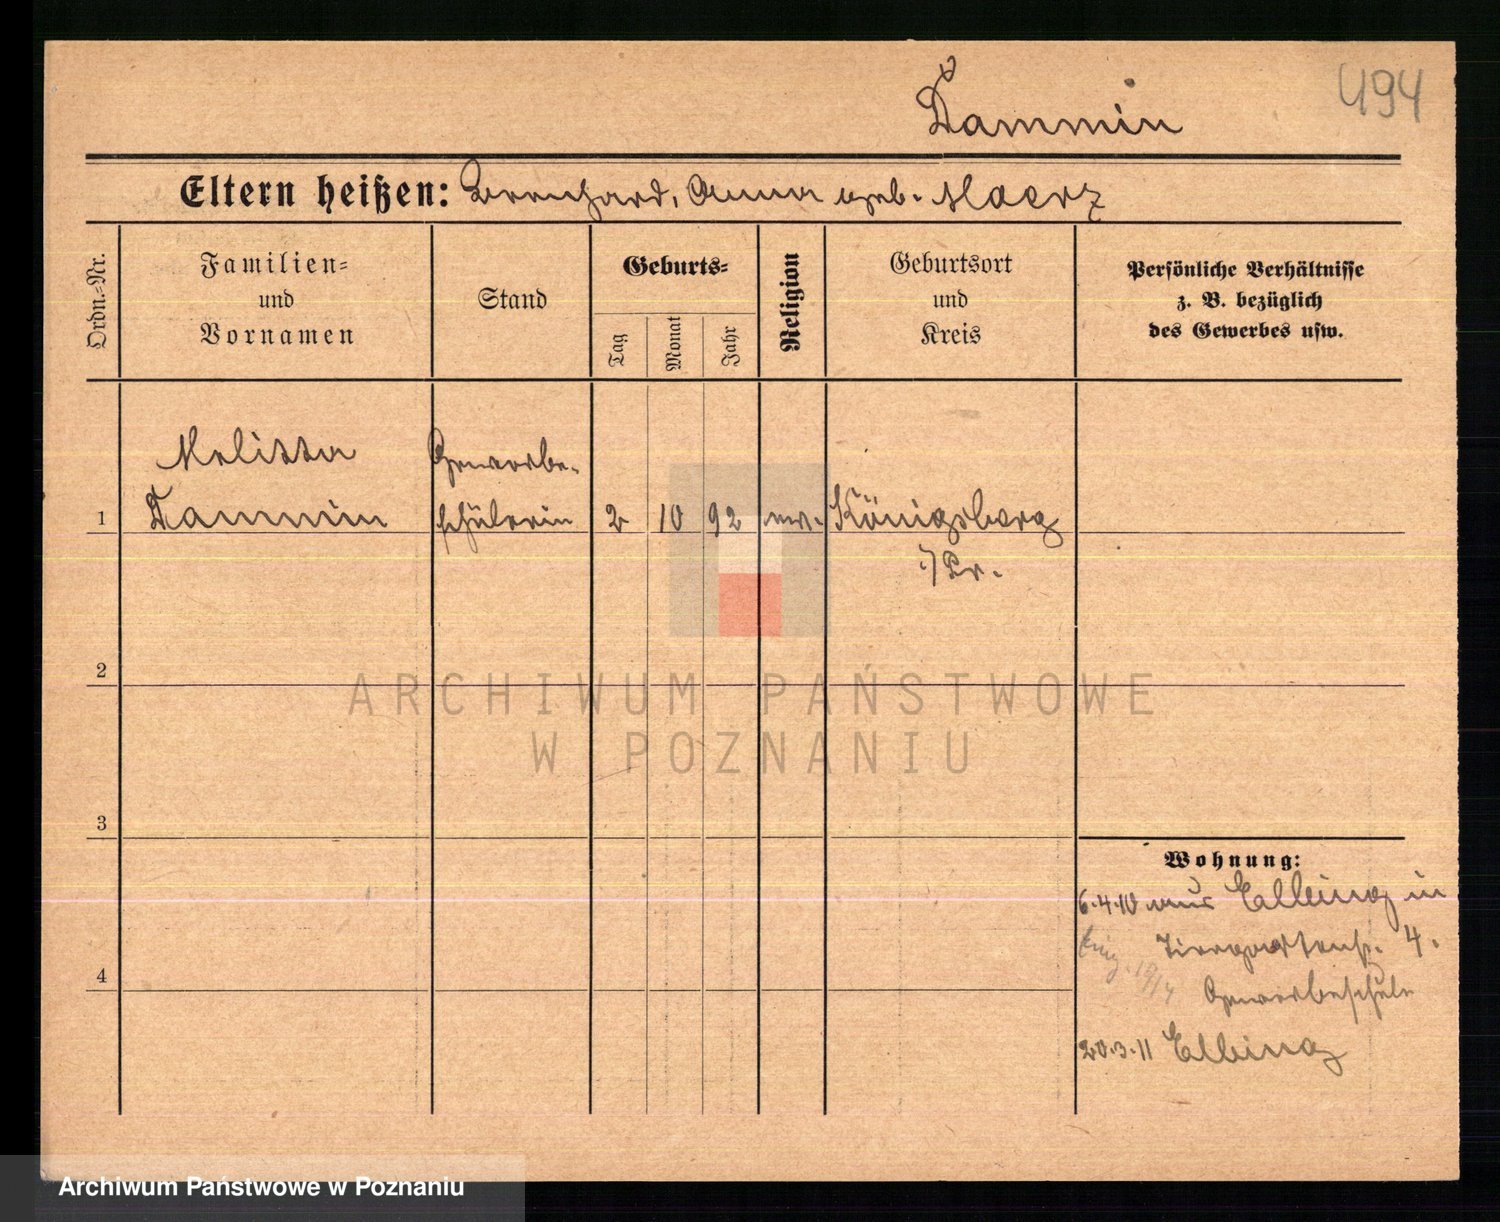 494
Tammin
Eltern heißen: Bernhard, Anna geb. Maerz
Ordn.-Nr.
Familien-
und
Vornamen
Stand
Geburts-
Tag
Monat
Jahr
Religion
Geburtsort
und
Kreis
Persönliche Verhältnisse
z. B. bezüglich
des Gewerbes usw.
Melitta Gewerbe-
1 Tammin schülerin 2 10 92 ev. Königsberg
i/Pr.
2
ARCHIWUM PAŃSTWOWE
W POZNANIU
3
Wohnung:
6.4.10 aus Elbing in
Tiergartenstr. 4.
4
Gewerbeschule
20.3.11 Elbing
Archiwum Państwowe w Poznaniu